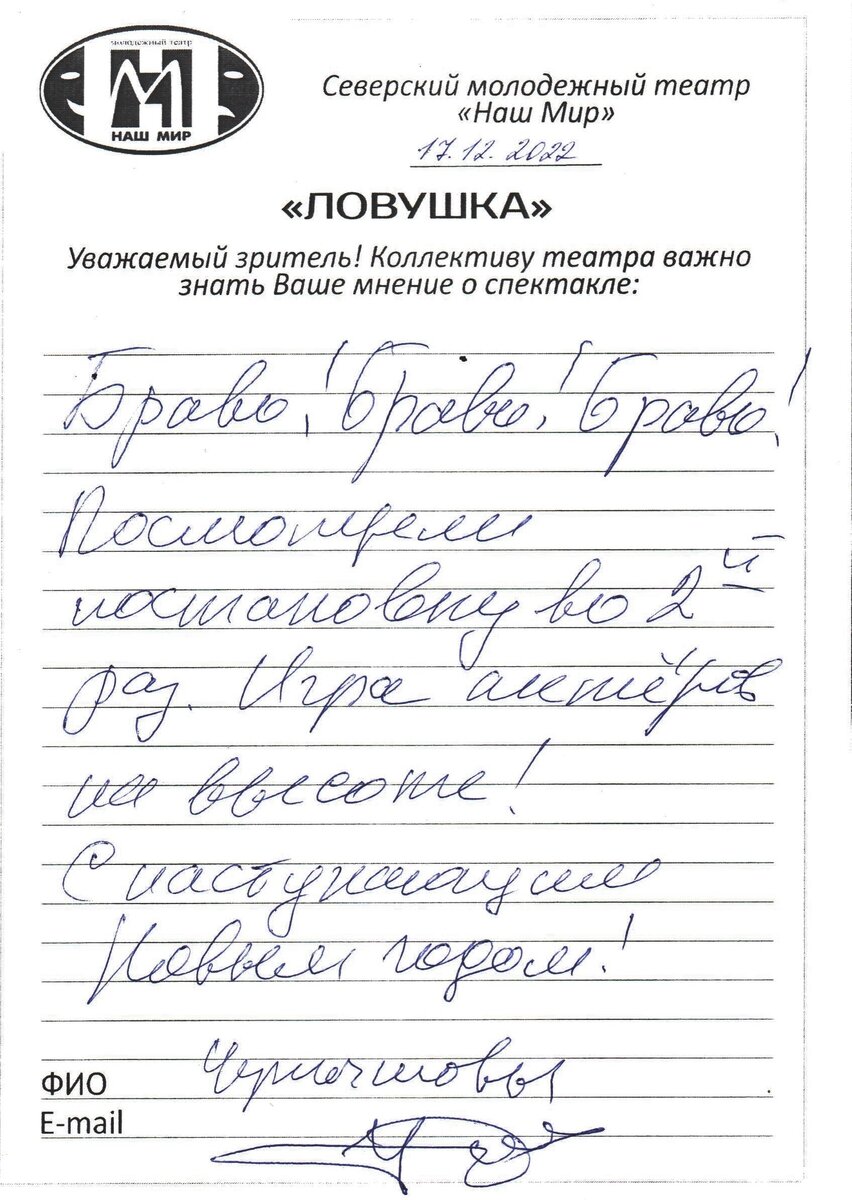 молодежный театр
НАШ МИР
Северский молодежный театр
«Наш Мир»
17.12.2022
«ЛОВУШКА»
Уважаемый зритель! Коллективу театра важно
знать Ваше мнение о спектакле:
Браво! Браво! Браво!
Посмотрели
постановку во 2й
раз. Игра актёров
на высоте!
С наступающим
Новым годом!
ФИО
E-mail